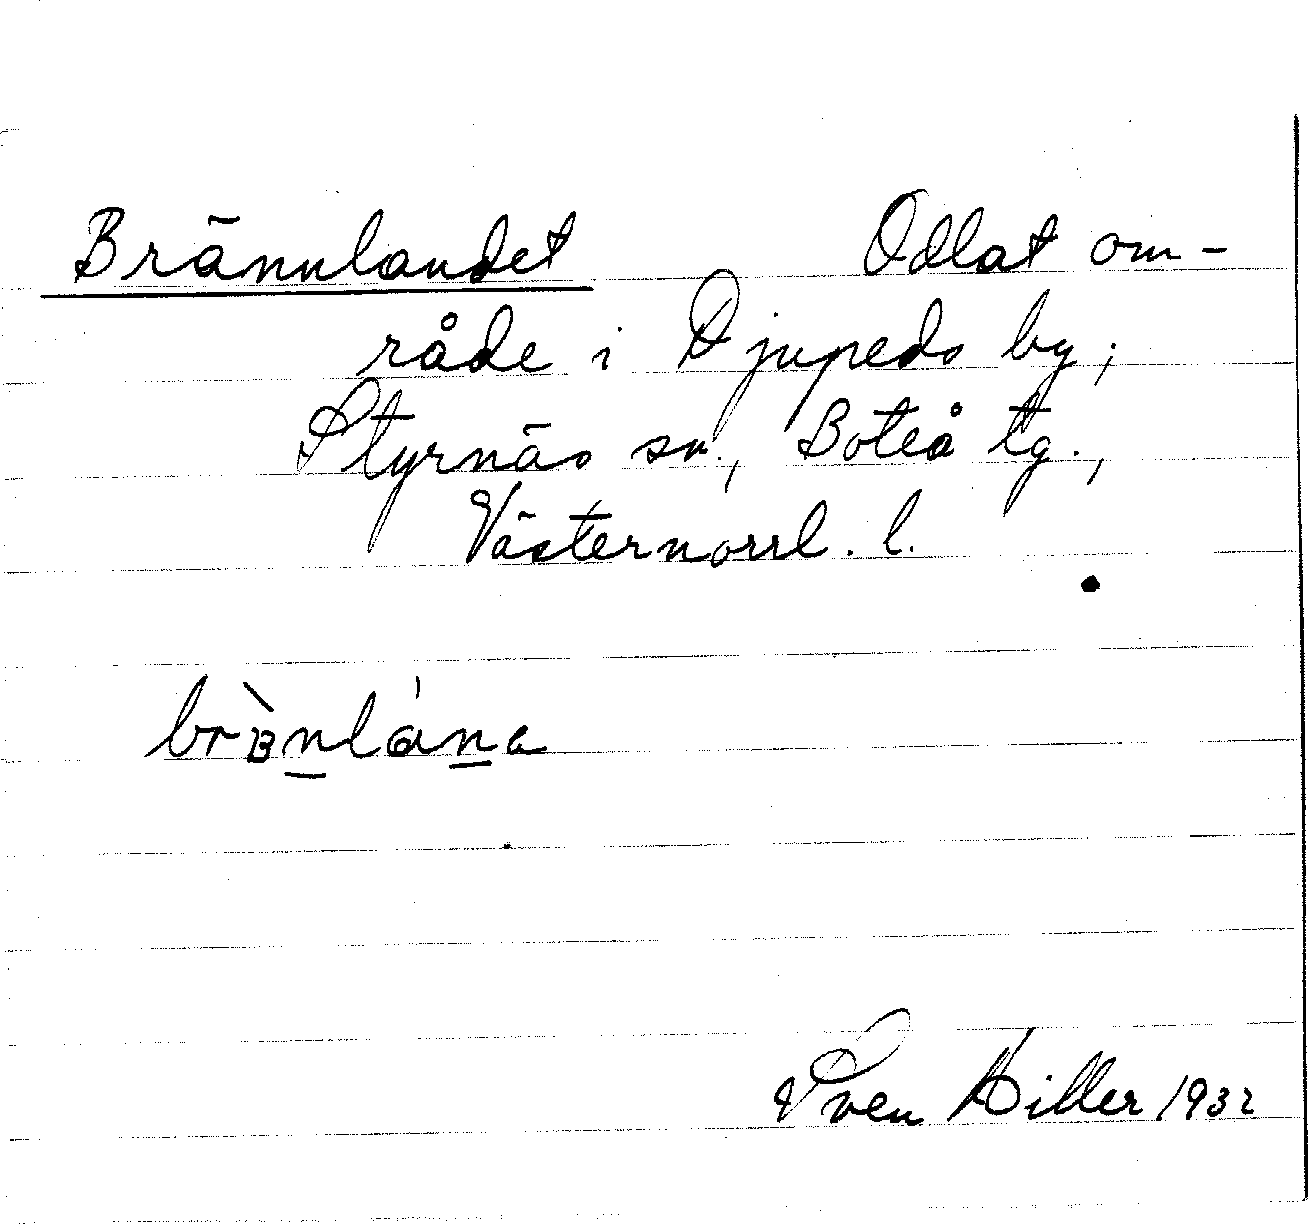 Brännlandet Odlat om-
råde i Djupeds by,
Styrnäs sn., Boteå tg.,
Västernorrl. l.
Sven Hiller 1932